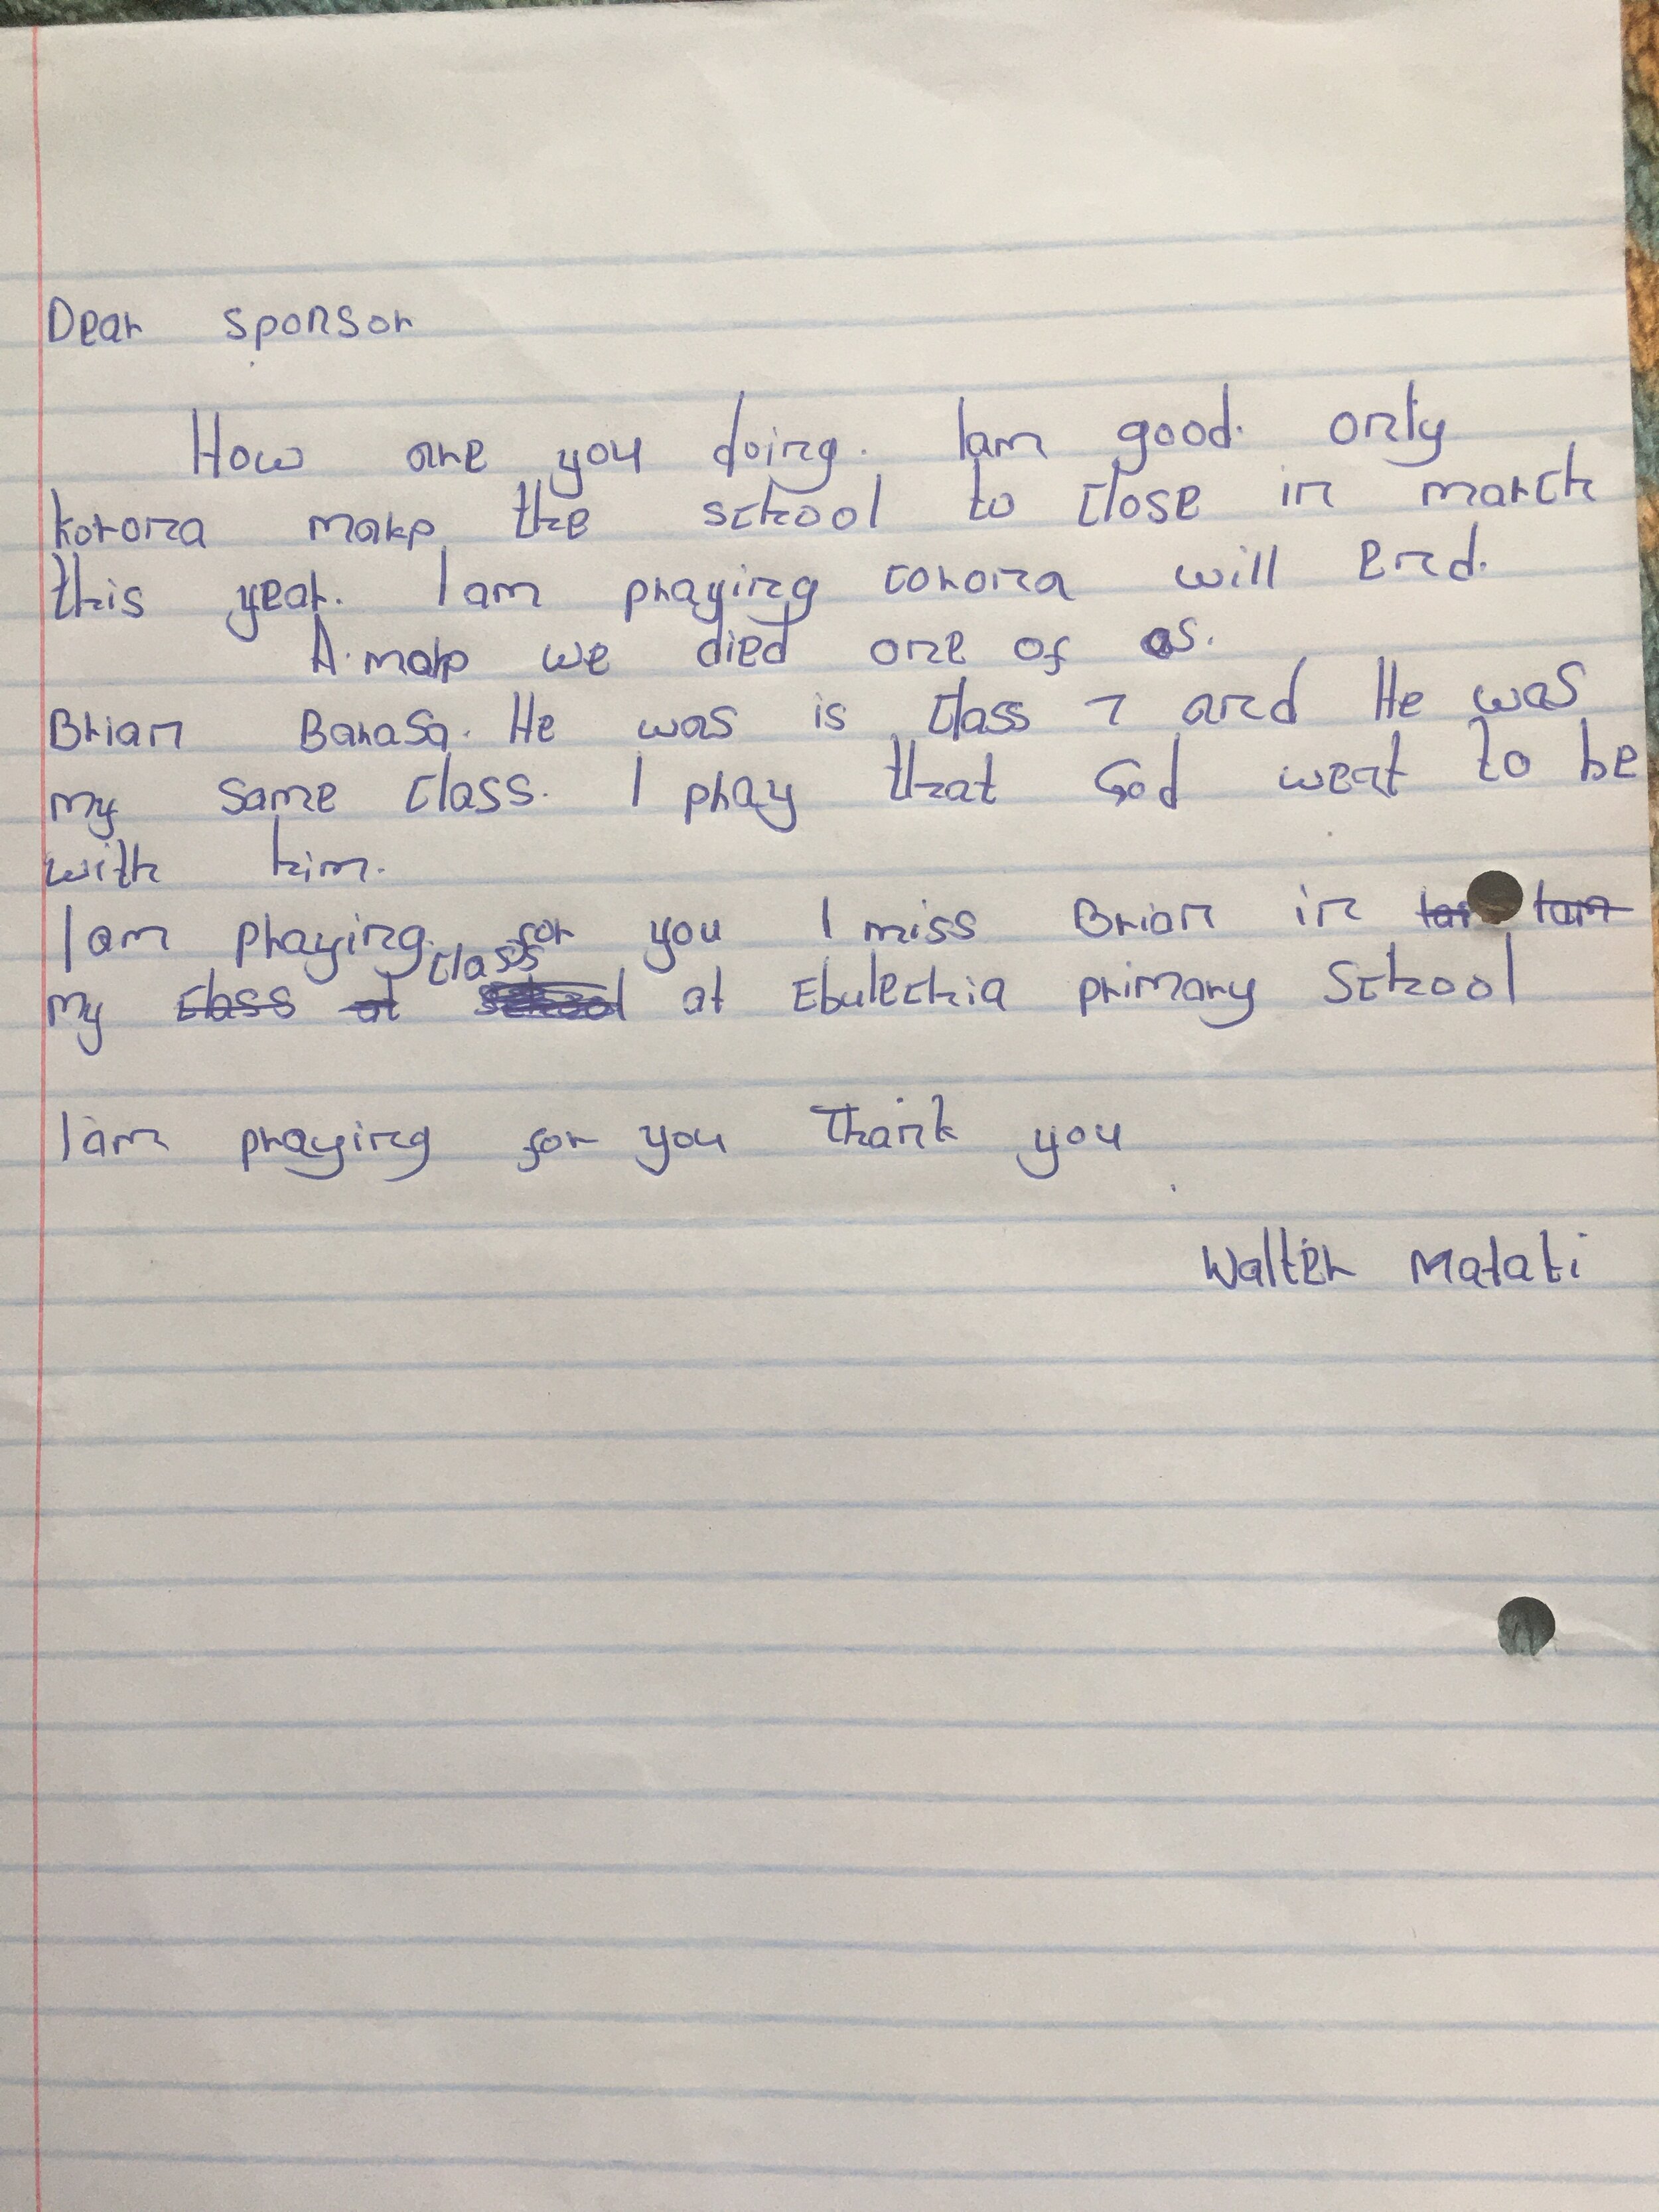 Dear sponsor
How are you doing. Iam good. only
korona make the school to close in march
this year. I am praying corona will end.
A.make we died one of as.
Brian Barasa. He was is class 7 and He was
my same class. I pray that God went to be
with him.
I am praying for you I miss Brian in
my class at class at Ebulechia primary School
Iam praying for you Thank you
Walter Matati